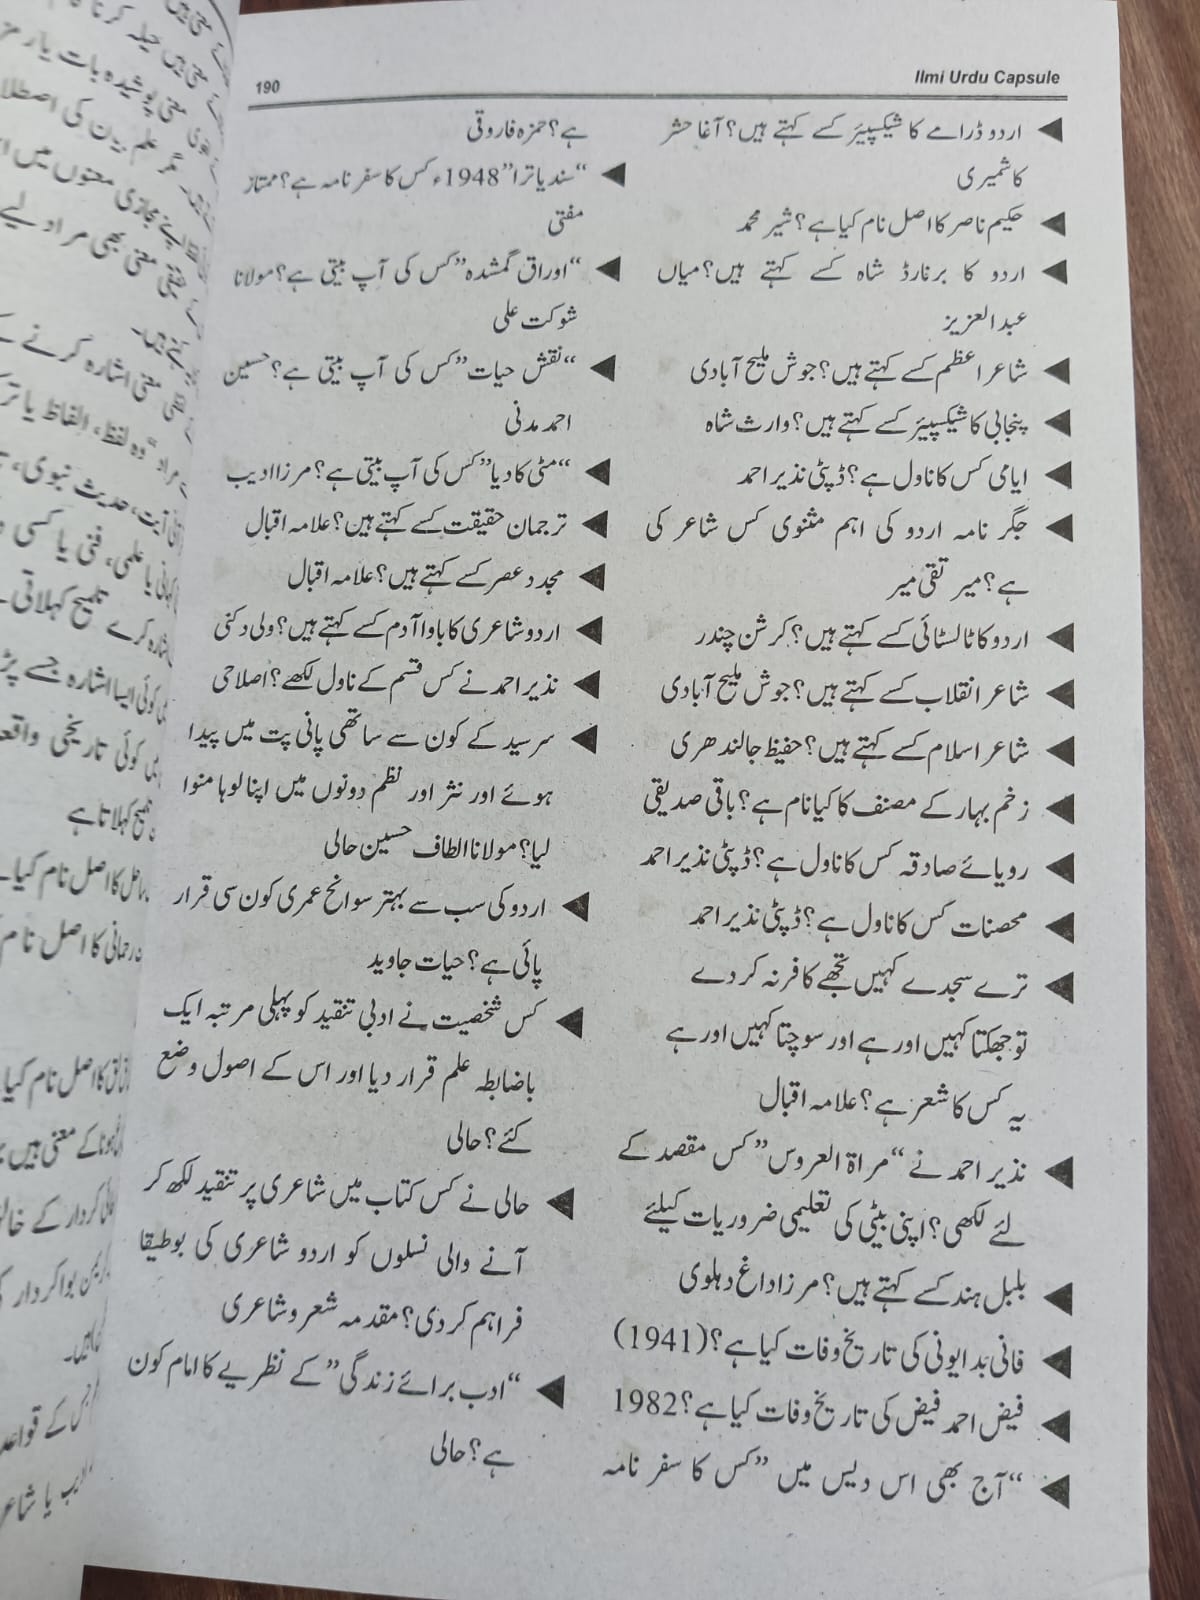 190
Ilmi Urdu Capsule
اردو ڈرامے کا شیکسپیئر کسے کہتے ہیں؟ آغا حشر
کاشمیری
حکیم ناصر کا اصل نام کیا ہے؟ شیر محمد
اردو کا برنارڈ شاہ کسے کہتے ہیں؟ میاں
عبدالعزیز
شاعر اعظم کسے کہتے ہیں؟ جوش ملیح آبادی
پنجابی کا شیکسپیئر کسے کہتے ہیں؟ وارث شاہ
ایامی کس کا ناول ہے؟ ڈپٹی نذیر احمد
جگر نامہ اردو کی اہم مثنوی کس شاعر کی
ہے؟ میر تقی میر
اردو کا ٹالسٹائی کسے کہتے ہیں؟ کرشن چندر
شاعر انقلاب کسے کہتے ہیں؟ جوش ملیح آبادی
شاعر اسلام کسے کہتے ہیں؟ حفیظ جالندھری
زخم بہار کے مصنف کا کیا نام ہے؟ باقی صدیقی
رویائے صادقہ کس کا ناول ہے؟ ڈپٹی نذیر احمد
محصنات کس کا ناول ہے؟ ڈپٹی نذیر احمد
ترے سجدے کہیں تجھے کافر نہ کر دے
تو جھکتا کہیں اور ہے اور سوچتا کہیں اور ہے
یہ کس کا شعر ہے؟ علامہ اقبال
نذیر احمد نے “مراۃ العروس” کس مقصد کے
لئے لکھی؟ اپنی بیٹی کی تعلیمی ضروریات کیلئے
بلبل ہند کسے کہتے ہیں؟ مرزا داغ دہلوی
فانی بدایونی کی تاریخ وفات کیا ہے؟ (1941)
فیض احمد فیض کی تاریخ وفات کیا ہے؟ 1982
“آج بھی اس دیس میں” کس کا سفر نامہ
ہے؟ حمزہ فاروقی
“سندیاترا” 1948ء کس کا سفر نامہ ہے؟ ممتاز
مفتی
“اوراق گمشدہ” کس کی آپ بیتی ہے؟ مولانا
شوکت علی
“نقش حیات” کس کی آپ بیتی ہے؟ حسین
احمد مدنی
“مٹی کا دیا” کس کی آپ بیتی ہے؟ مرزا ادیب
ترجمان حقیقت کسے کہتے ہیں؟ علامہ اقبال
مجدد عصر کسے کہتے ہیں؟ علامہ اقبال
اردو شاعری کا باوا آدم کسے کہتے ہیں؟ ولی دکنی
نذیر احمد نے کس قسم کے ناول لکھے؟ اصلاحی
سرسید کے کون سے ساتھی پانی پت میں پیدا
ہوئے اور نثر اور نظم دونوں میں اپنا لوہا منوا
لیا؟ مولانا الطاف حسین حالی
اردو کی سب سے بہتر سوانح عمری کون سی قرار
پائی ہے؟ حیات جاوید
کس شخصیت نے ادبی تنقید کو پہلی مرتبہ ایک
باضابطہ علم قرار دیا اور اس کے اصول وضع
کئے؟ حالی
حالی نے کس کتاب میں شاعری پر تنقید لکھ کر
آنے والی نسلوں کو اردو شاعری کی بوطیقا
فراہم کر دی؟ مقدمہ شعر و شاعری
“ادب برائے زندگی” کے نظریے کا امام کون
ہے؟ حالی